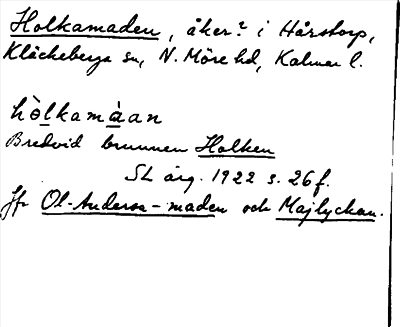 Holkamaden, åker? i Hårstorp,
Kläckeberga sn, N. Möre hd, Kalmar l.
hòlkamàan
Bredvid brunnen Holken
SL årg. 1922 s. 26 f.
Jfr Ol-Anders-maden och Majlyckan.